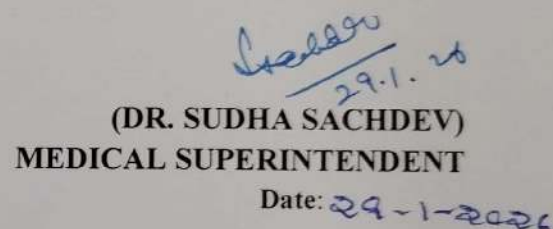 29.1.26
(DR. SUDHA SACHDEV)
MEDICAL SUPERINTENDENT
Date: 29-1-2026